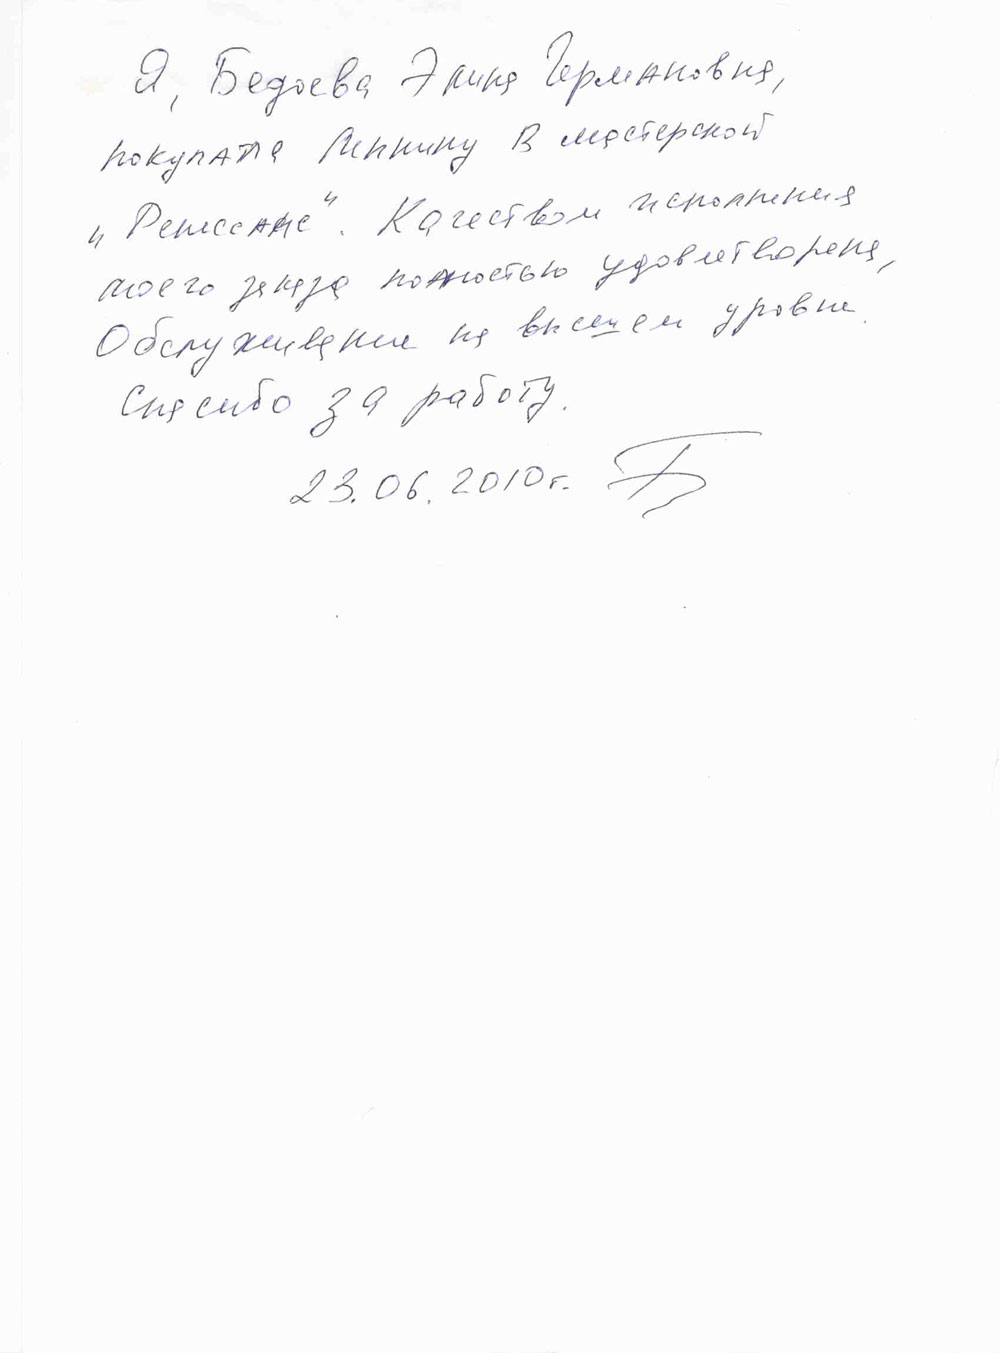 Я, Бедоева Элина Германовна,
покупала лепнину в мастерской
„Ренессанс“. Качеством исполнения
моего заказа полностью удовлетворена,
Обслуживание на высшем уровне.
Спасибо за работу.
23.06.2010г.